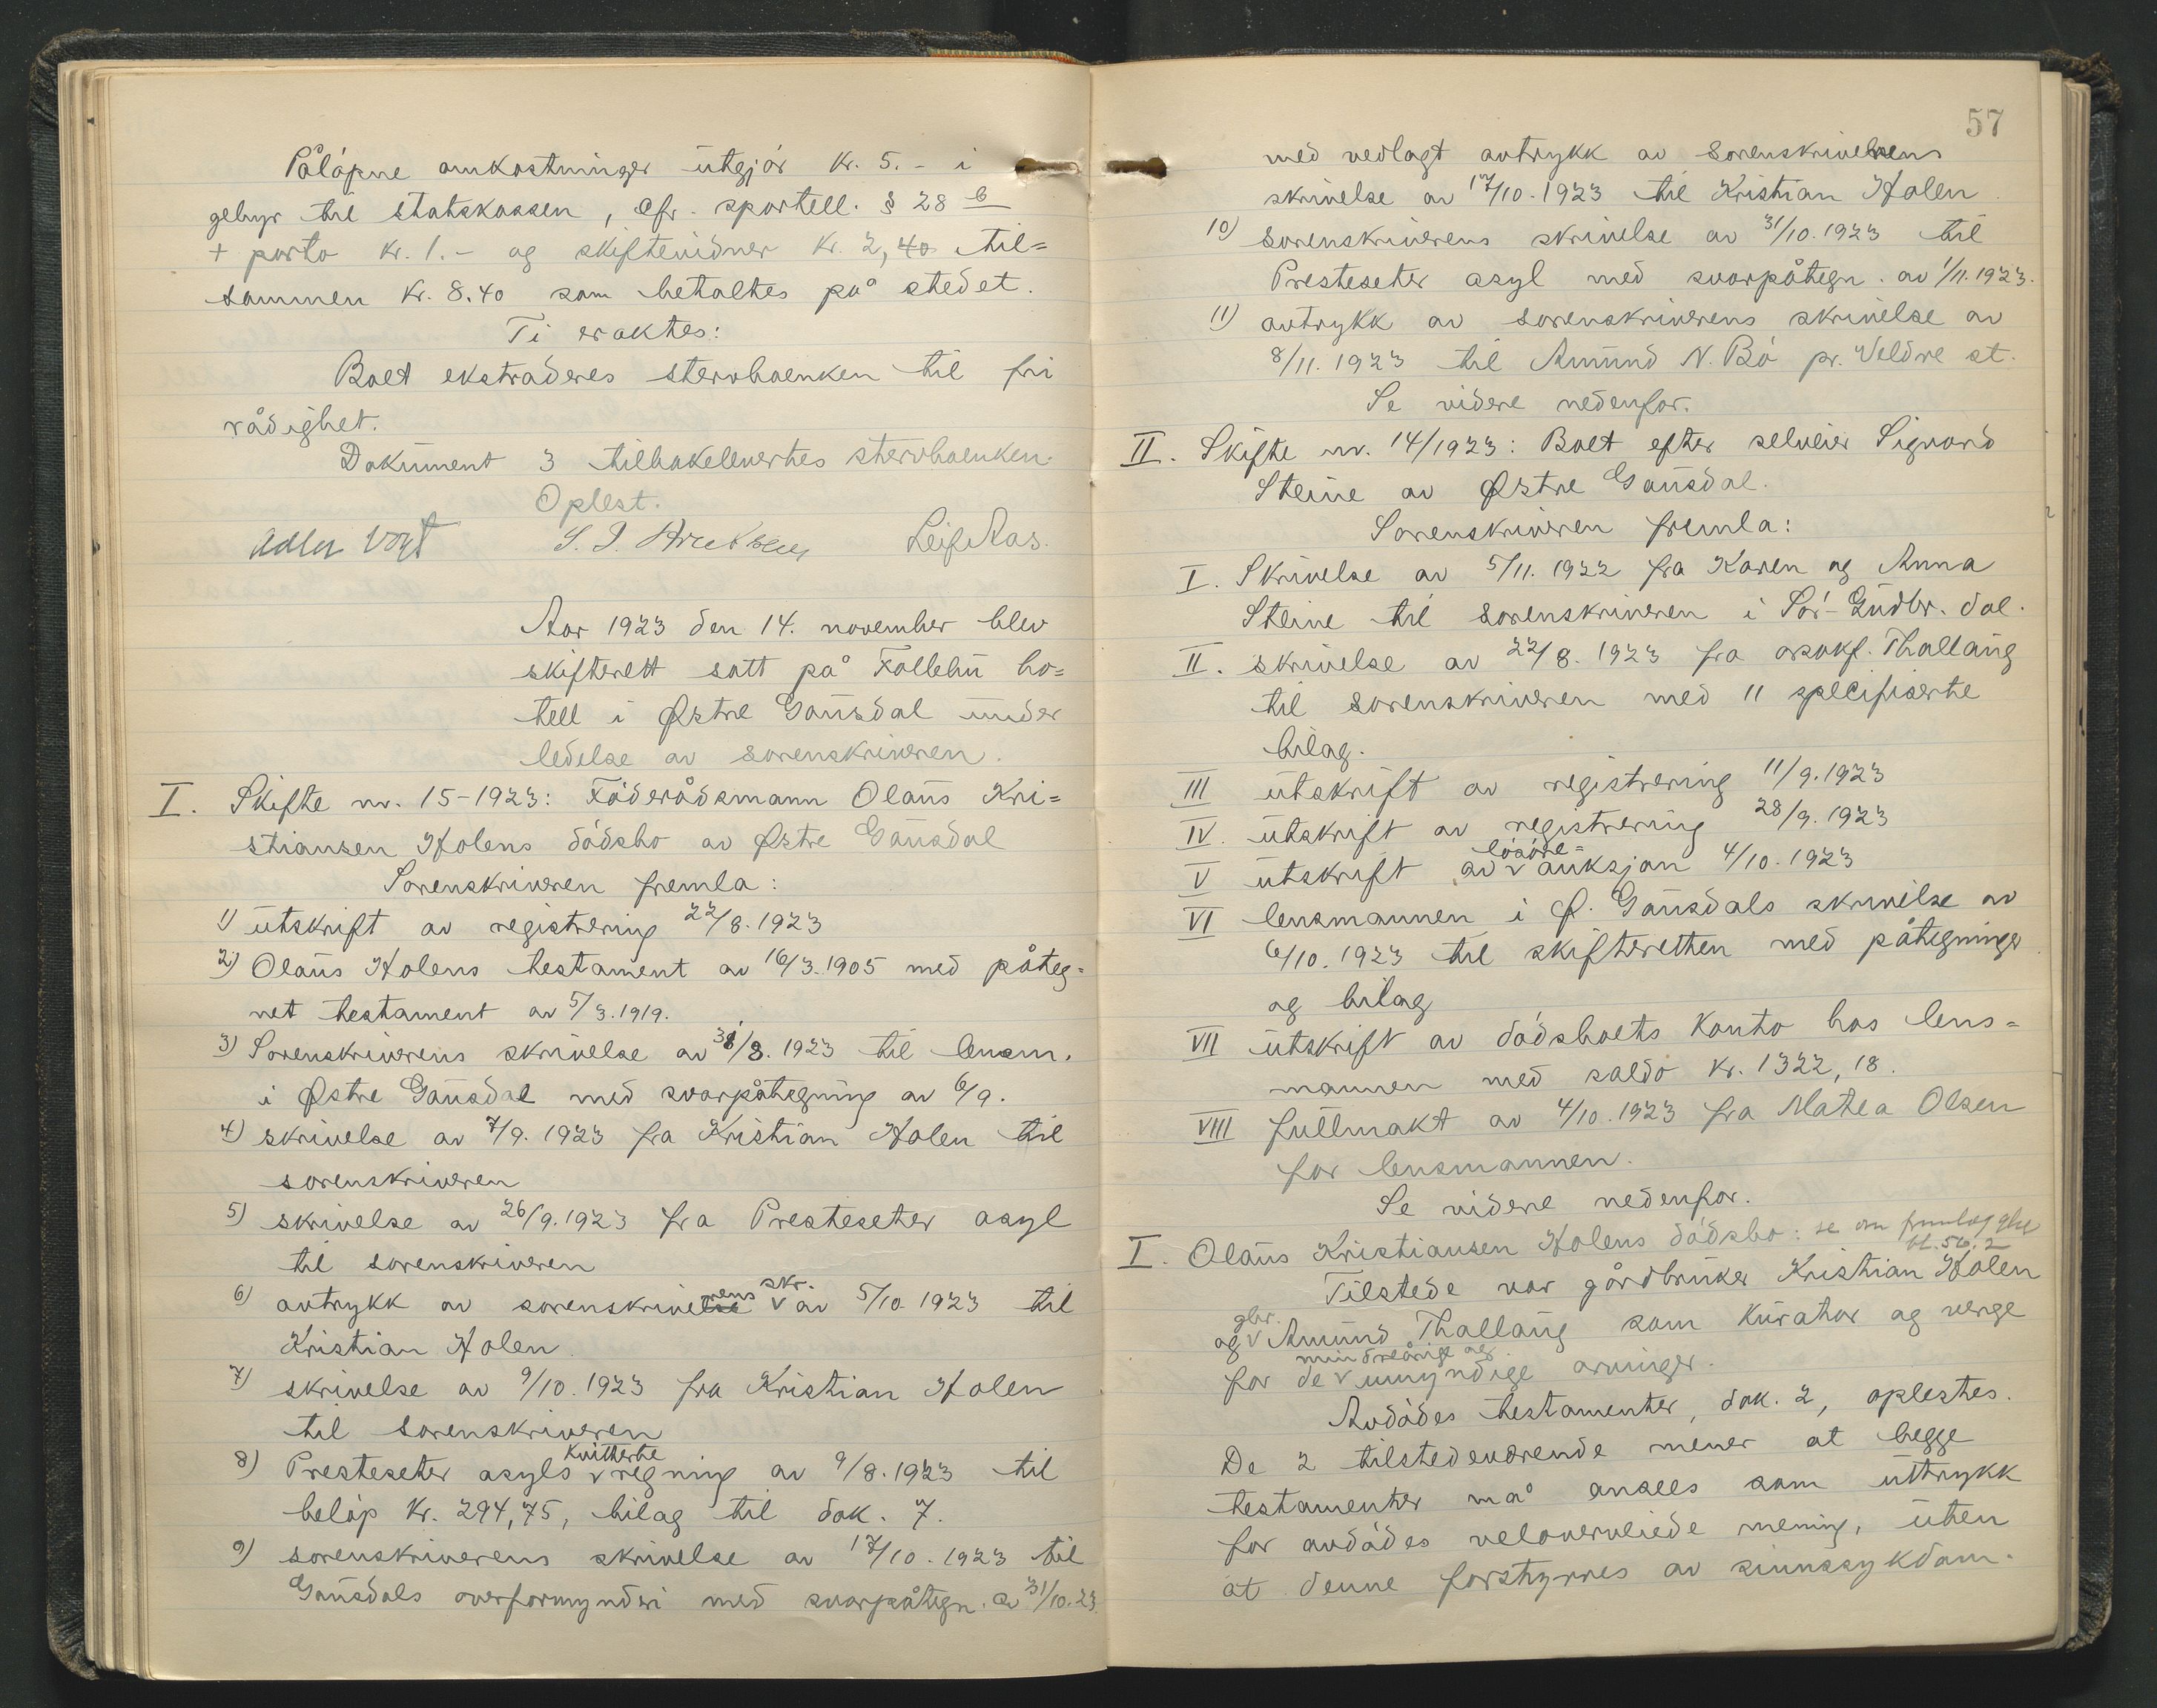 Påløpne omkostninger utgjør kr. 5.- i
gebyr til statskassen, cfr. sportell. § 28 b
+ porto kr. 1.- og skiftevidner kr. 2,40 til=
sammen kr. 8.40 som betaltes på stedet.
Ti eraktes:
Boet ekstraderes stervboenken til fri
rådighet.
Dokument 3 tilbakelevertes stervboenken.
Oplest.
Adler Vogt Leif Aas.
Aar 1923 den 14. november blev
skifterett satt på Follebu ho=
tell i Østre Gausdal under
ledelse av sorenskriveren.
I. Skifte nr. 15-1923: Føderådsmann Olaus Kri=
stiansen Holens dødsbo av Østre Gausdal
Sorenskriveren fremla:
1) utskrift av registrering 22/8. 1923
2) Olaus Holens testament av 16/3. 1905 med påteg=
net testament av 5/3. 1919.
3) Sorenskriverens skrivelse av 31/8. 1923 til lensm.
i Østre Gausdal med svarpåtegning av 6/9.
4) skrivelse av 7/9. 1923 fra Kristian Holen til
sorenskriveren
5) skrivelse av 26/9. 1923 fra Presteseter asyl
til sorenskriveren
6) avtrykk av sorenskriverens skr. av 5/10. 1923 til
Kristian Holen.
7) skrivelse av 9/10. 1923 fra Kristian Holen
til sorenskriveren
8) Presteseter asyls kvitterte regning av 9/8. 1923 til
beløp kr. 294,75, bilag til dok. 7.
9) sorenskriverens skrivelse av 17/10. 1923 til
Gausdals overformynderi med svarpåtegn. av 31/10. 23.
57
med vedlagt avtrykk av sorenskriverens
skrivelse av 17/10. 1923 til Kristian Holen
10) Sorenskriverens skrivelse av 31/10. 1923 til
Presteseter asyl med svarpåtegn. av 1/11. 1923.
11) avtrykk av sorenskriverens skrivelse av
8/11. 1923 til Amund N. Bø pr. Veldre st.
Se videre nedenfor.
II. Skifte nr. 14/1923: Boet efter selveier Sigvard
Steine av Østre Gausdal.
Sorenskriveren fremla:
I. Skrivelse av 5/11. 1922 fra Karen og Anna
Steine til sorenskriveren i Sør-Gudbr. dal.
II. skrivelse av 22/8. 1923 fra o.r.sakf. Thallaug
til sorenskriveren med 11 specifiserte
bilag.
III utskrift av registrering 11/9. 1923
IV. utskrift av registrering 28/9. 1923
V utskrift av løsøre= auksjon 4/10. 1923
VI lensmannen i Ø. Gausdals skrivelse av
6/10. 1923 til skifteretten med påtegninger
og bilag
VII utskrift av dødsboets konto hos lens=
mannen med saldo kr. 1322,18.
VIII fullmakt av 4/10. 1923 fra Matea Olsen
for lensmannen.
Se videre nedenfor.
I. Olaus Kristiansen Holens dødsbo: se om fremlæggelse
bl. 56, 2
Tilstede var gårdbruker Kristian Holen
og gbr. Amund Thallaug som kurator og verge
for de mindreårige og umyndige arvinger.
Avdødes testamenter, dok. 2, oplestes.
De 2 tilstedeværende mener at begge
testamenter må ansees som uttrykk
for avdødes veloverveiede mening, uten
at denne forstyrres av sinnssykdom.